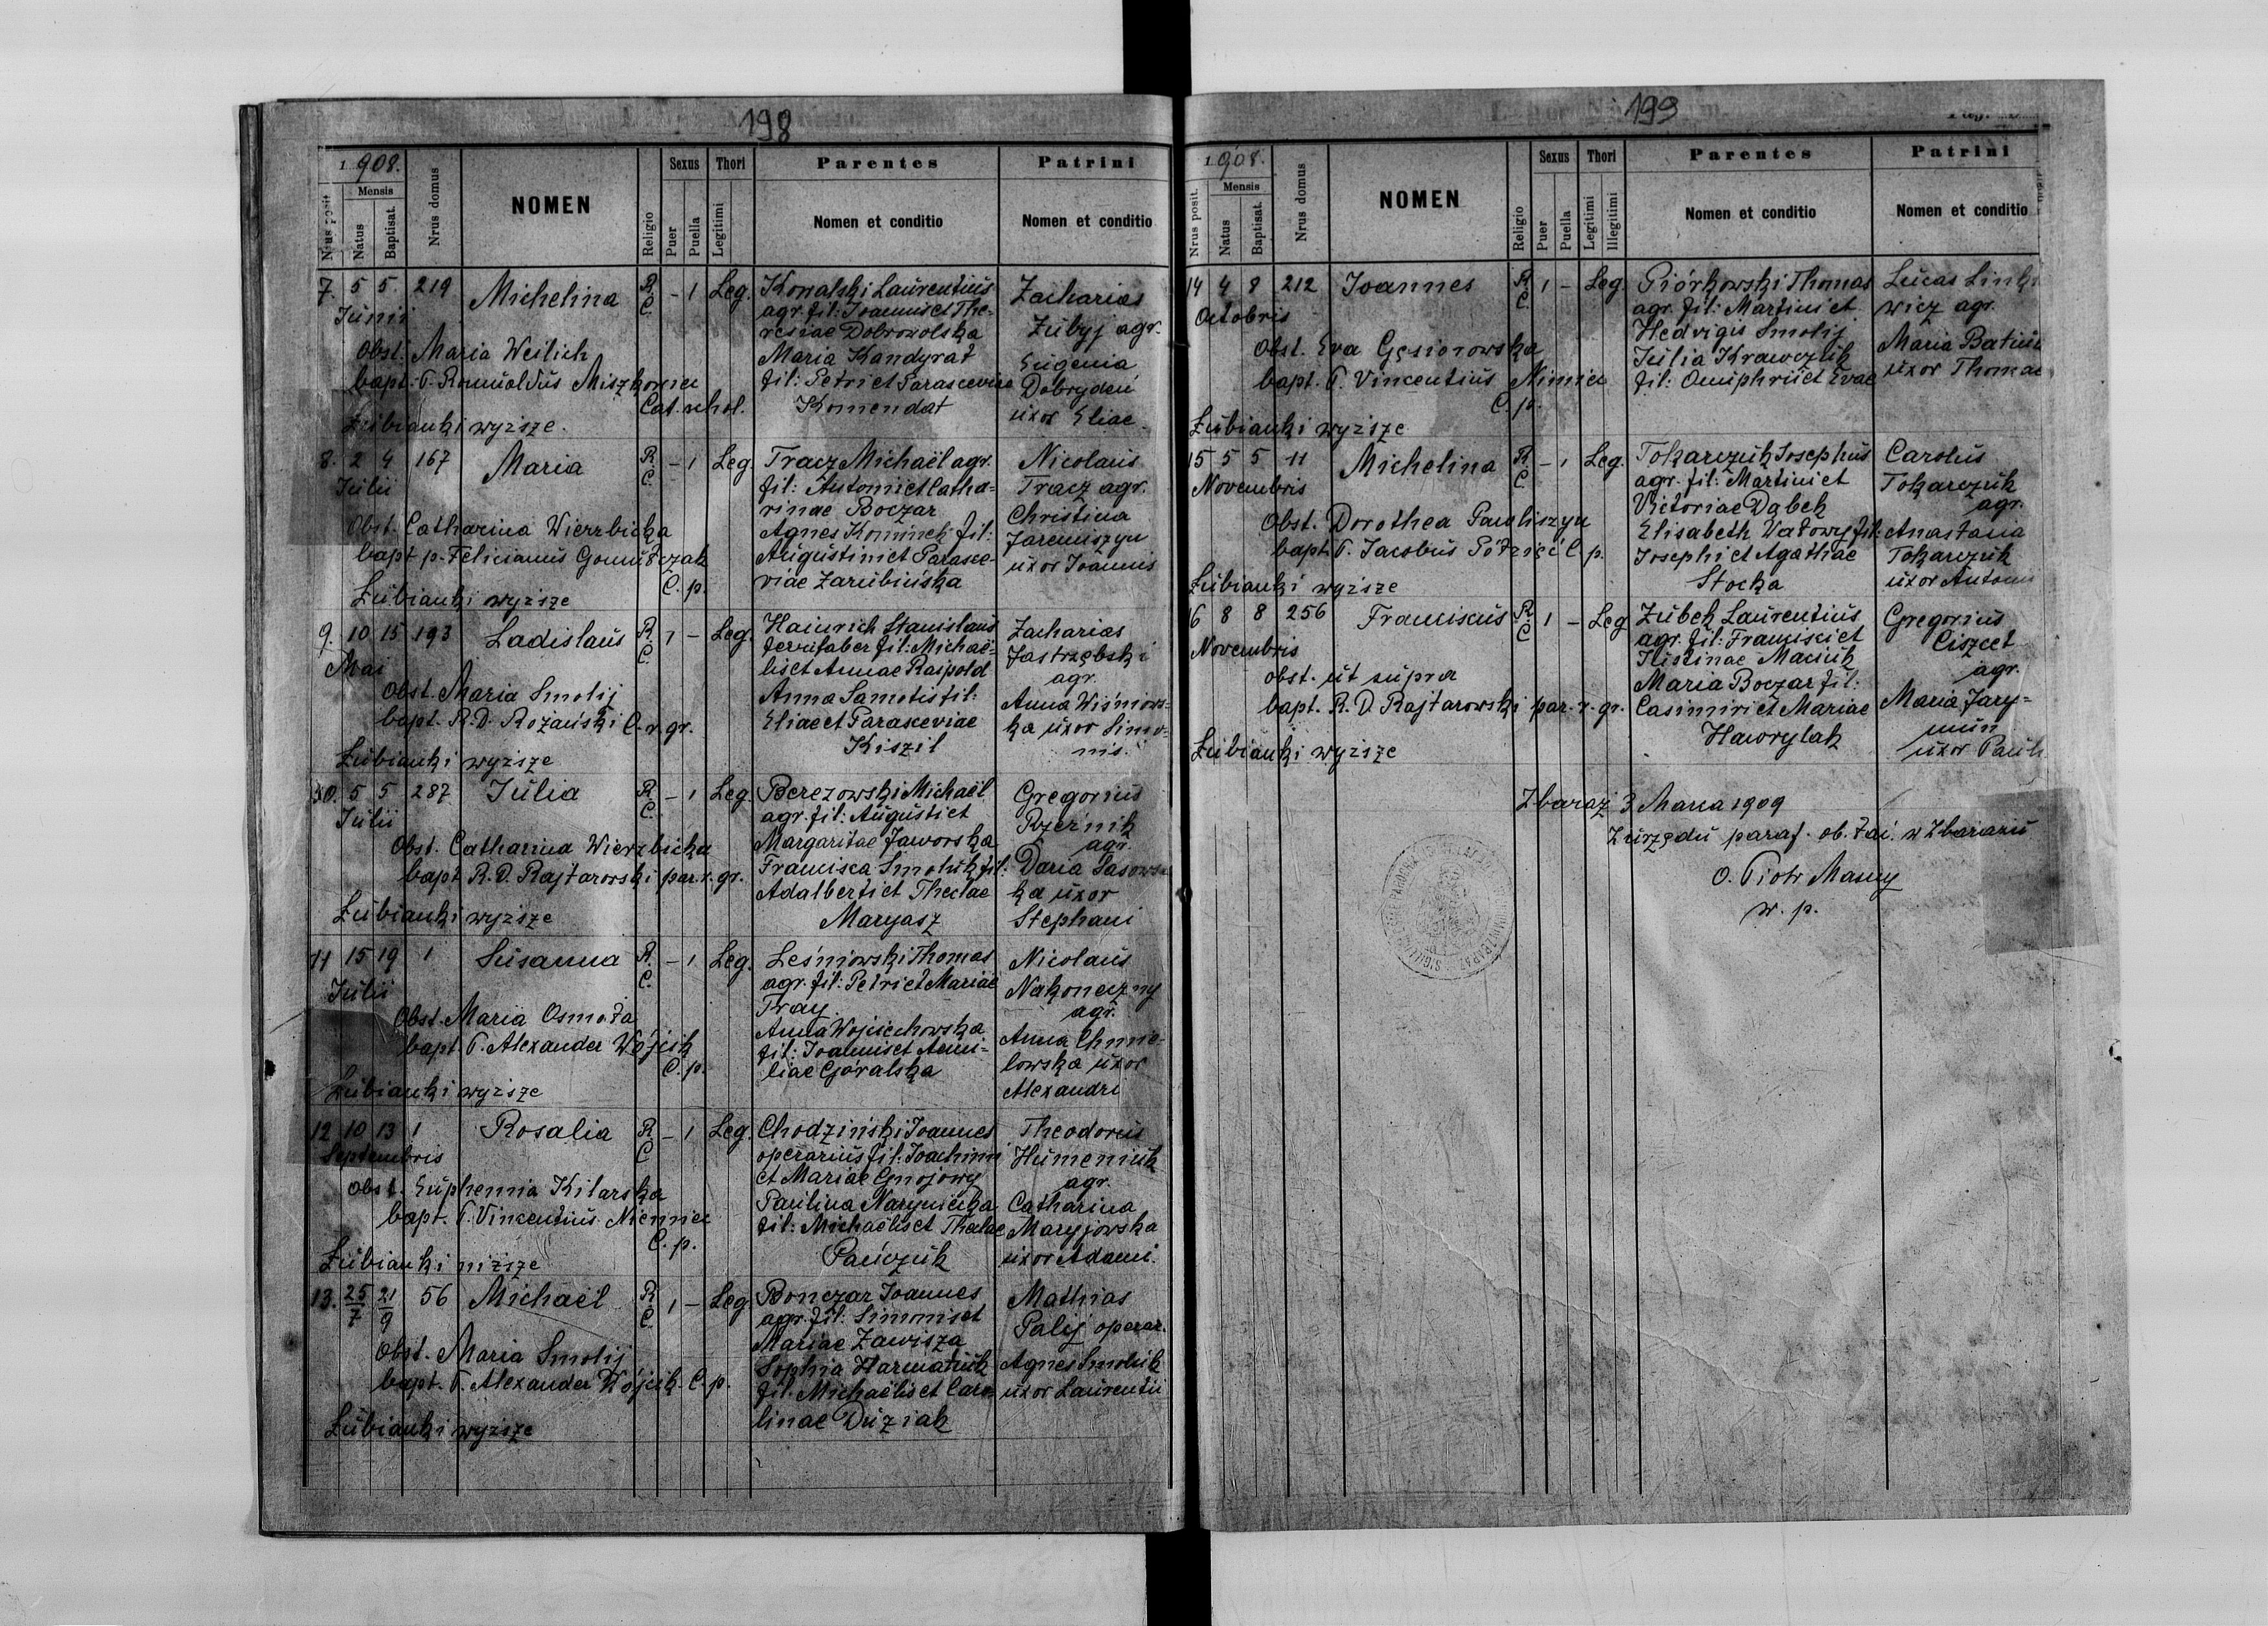 198
1908.
Nrus posit.
Mensis
Natus
Baptisat.
Nrus domus
NOMEN
Religio
Sexus
Puer
Puella
Thori
Legitimi
Parentes
Nomen et conditio
Patrini
Nomen et conditio
7. 5 5 219 Michelina R. C. – 1 Leg. Kowalski Laurentius Zacharias
Junii agr. fil: Joannis et The- Zubyj agr.
resiae Dobrowolska
Obst. Maria Weilich Maria Kandyrat Eugenia
bapt. P. Romualdus Miszkowicz fil: Petri et Parasceviae Dobrydeń
Cat. schol. Komendat uxor Eliae.
Łubianki wyższe.
8. 2 4 167 Maria R. C. – 1 Leg. Tracz Michaël agr. Nicolaus
Julii fil: Antonii et Catha- Tracz agr.
rinae Boczar Christina
Obst. Catharina Wierzbicka Agnes Kominek fil: Jaremiszyn
bapt. p. Felicianus Augustini et Parasce- uxor Joannis
C. p. viae Zarubińska
Łubianki wyższe
9. 10 15 193 Ladislaus R. C. 1 – Leg. Hainrich Stanislaus Zacharias
Mai ferrifaber fil: Michaë- Jastrzębski
lis et Annae Raipold agr.
Obst. Maria Smolij Anna Samotis fil: Anna Wiśniows-
bapt. R. D. Rożański C. r. gr. Eliae et Parasceviae ka uxor Simo-
Kiszil nis.
Łubianki wyższe
10. 5 5 287 Julia R. C. – 1 Leg. Berezowski Michaël Gregorius
Julii agr. fil: Augusti et Rzeźnik
Margaritae Jaworska agr.
Obst. Catharina Wierzbicka Francisca Smoluk fil: Daria Sasows-
bapt. R. D. Rajtarowski par. r. gr. Adalberti et Theclae ka uxor
Łubianki wyższe Maryasz Stephani
11 15 19 1 Susanna R. C. – 1 Leg. Leśniowski Thomas Nicolaus
Julii agr. fil: Petri et Mariae Nakoneczny
Tray. agr.
Obst. Maria Osmoła Anna Wojciechowska Anna Chmie-
bapt. P. Alexander Wójcik fil: Joannis et Aemi- lowska uxor
C. p. liae Góralska Alexandri
Łubianki wyższe
12 10 13 1 Rosalia R. C. – 1 Leg. Chodziński Joannes Theodorus
Septembris operarius fil: Joachimi Humeniuk
et Mariae Gnojowy agr.
Obst. Euphemia Kilarska Paulina Narynicka Catharina
bapt. P. Vincentius Niemiec fil: Michaëlis et Theclae Maryjowska
C. p. Pańczuk uxor Adami.
Łubianki niższe
13. 25/7 21/9 56 Michaël R. C. 1 – Leg. Bonczar Joannes Mathias
agr. fil: Simonis et Palij operar.
Mariae Zawisza
Obst. Maria Smolij Sophia Harmatiuk Agnes Smoluk
bapt. P. Alexander Wójcik. C. p. fil: Michaëlis et Caro- uxor Laurentii
linae Duziak
Łubianki wyższe
199
1908.
Nrus posit.
Mensis
Natus
Baptisat.
Nrus domus
NOMEN
Religio
Sexus
Puer
Puella
Thori
Legitimi
Illegitimi
Parentes
Nomen et conditio
Patrini
Nomen et conditio
14 4 8 212 Joannes R. C. 1 – Leg. Piórkowski Thomas Lucas Linki
Octobris agr. fil: Martini et wicz agr.
Hedvigis Smolij
Obst. Eva Gęsiorowska Julia Krawczuk Maria
bapt. P. Vincentius Nimiec fil: Onuphrii et Evae uxor Thomae
C. p.
Łubianki wyższe
15 5 5 11 Michelina R. C. – 1 Leg. Tokarczuk Josephus Carolus
Novembris agr. fil: Martini et Tokarczuk
Victoriae Dąbek agr.
Obst. Dorothea Pauliszyn Elisabeth Watowy fil: Anastasia
bapt. P. Jacobus C. p. Josephi et Agathae Tokarczuk
Stocka uxor Antonii
Łubianki wyższe
16 8 8 256 Franciscus R. C. 1 – Leg. Zubek Laurentius Gregorius
Novembris agr. fil: Francisci et Ciszcet
Justinae Maciuk agr.
obst. ut supra Maria Boczar fil: Maria Jary-
bapt. R. D. Rajtarowski par. r. gr. Casimiri et Mariae mun
Hawrylak uxor Pauli
Łubianki wyższe
Zbaraż 3 Marca 1909
Z urzędu paraf. ob. łać. w Zbarażu
O. Piotr
w. p.